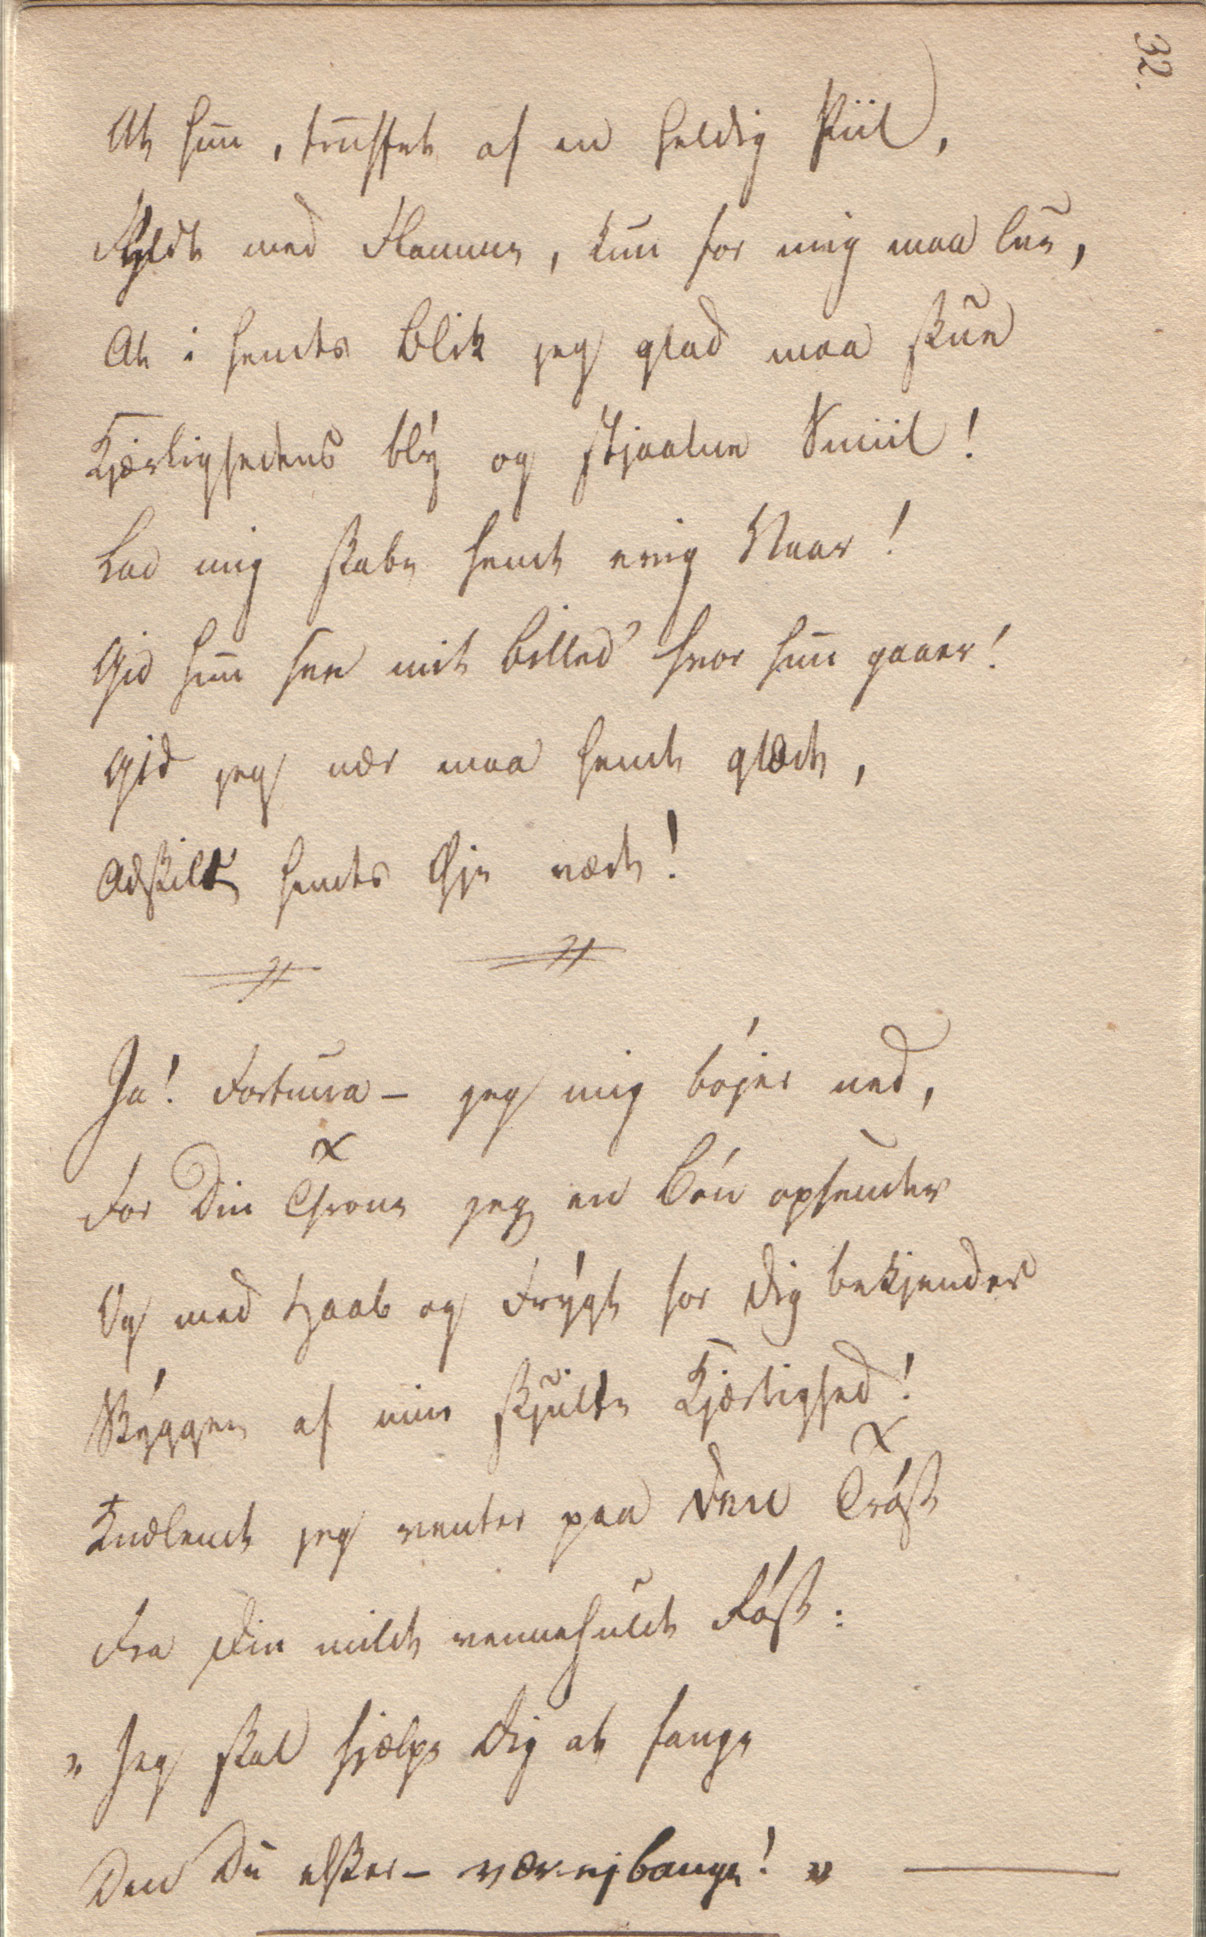 32.
At hun, truffet af en heldig Piil,
Fyldt med Flamme, kun for mig maa lue,
At i hendes Blik jeg glad maa skue
Kjærlighedens bly og stjaalne Smiil!
Lad mig skabe hende evig Vaar!
Gid hun see mit Billed' hvor hun gaaer!
Gid jeg nær maa hende glæde,
Adskilt hendes Øje væde!
Ja! Fortuna – jeg mig bøjer ned,
For Din Throne jeg en Bøn opsender
Og med Haab og Frygt for Dig bekjender
Skyggen af min skjulte Kjærlighed!
Knælende jeg venter paa den Trøst
Fra Din milde vennehulde Røst:
"Jeg skal hjælpe Dig at fange
Den Du elsker – vær ej bange!"